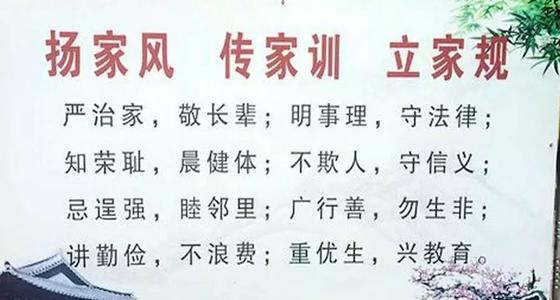 扬家风 传家训 立家规
严治家，敬长辈；明事理，守法律；
知荣耻，晨健体；不欺人，守信义；
忌逞强，睦邻里；广行善，勿生非；
讲勤俭，不浪费；重优生，兴教育。